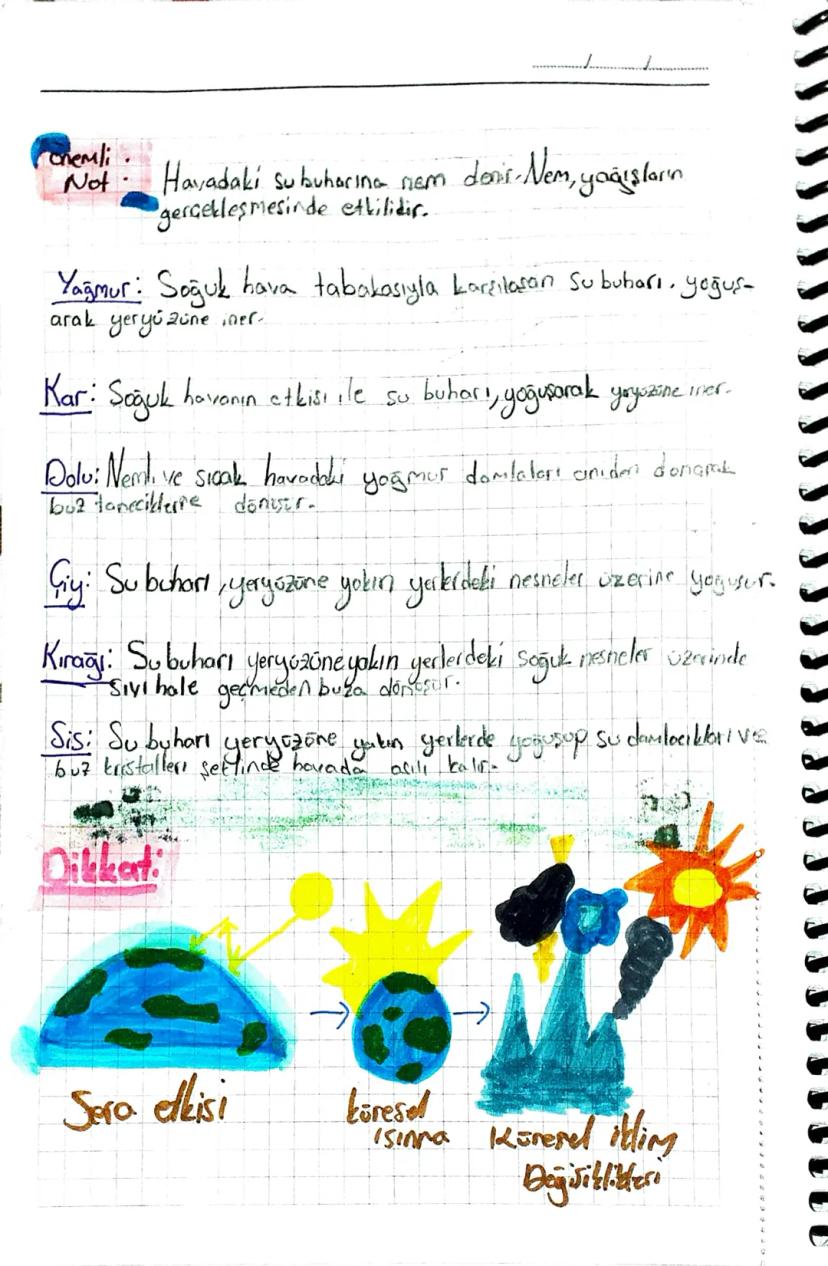 Önemli :
Not : Havadaki su buharına nem denir. Nem, yağışların
gerçekleşmesinde etkilidir.
Yağmur: Soğuk hava tabakasıyla karşılaşan su buharı, yoğuş-
arak yeryüzüne iner.
Kar: Soğuk havanın etkisi ile su buharı, yoğuşarak yeryüzüne iner.
Dolu: Nemli ve sıcak havadaki yağmur damlaları aniden donarak
buz taneciklerine dönüşür.
Çiy: Su buharı, yeryüzüne yakın yerlerdeki nesneler üzerine yoğuşur.
Kırağı: Su buharı yeryüzüne yakın yerlerdeki soğuk nesneler üzerinde
sıvı hale geçmeden buza dönüşür.
Sis: Su buharı yeryüzüne yakın yerlerde yoğuşup su damlacıkları ve
buz kristalleri şeklinde havada asılı kalır.
Dikkat:
Sera etkisi
küresel
ısınma
Küresel iklim
Değişiklikleri